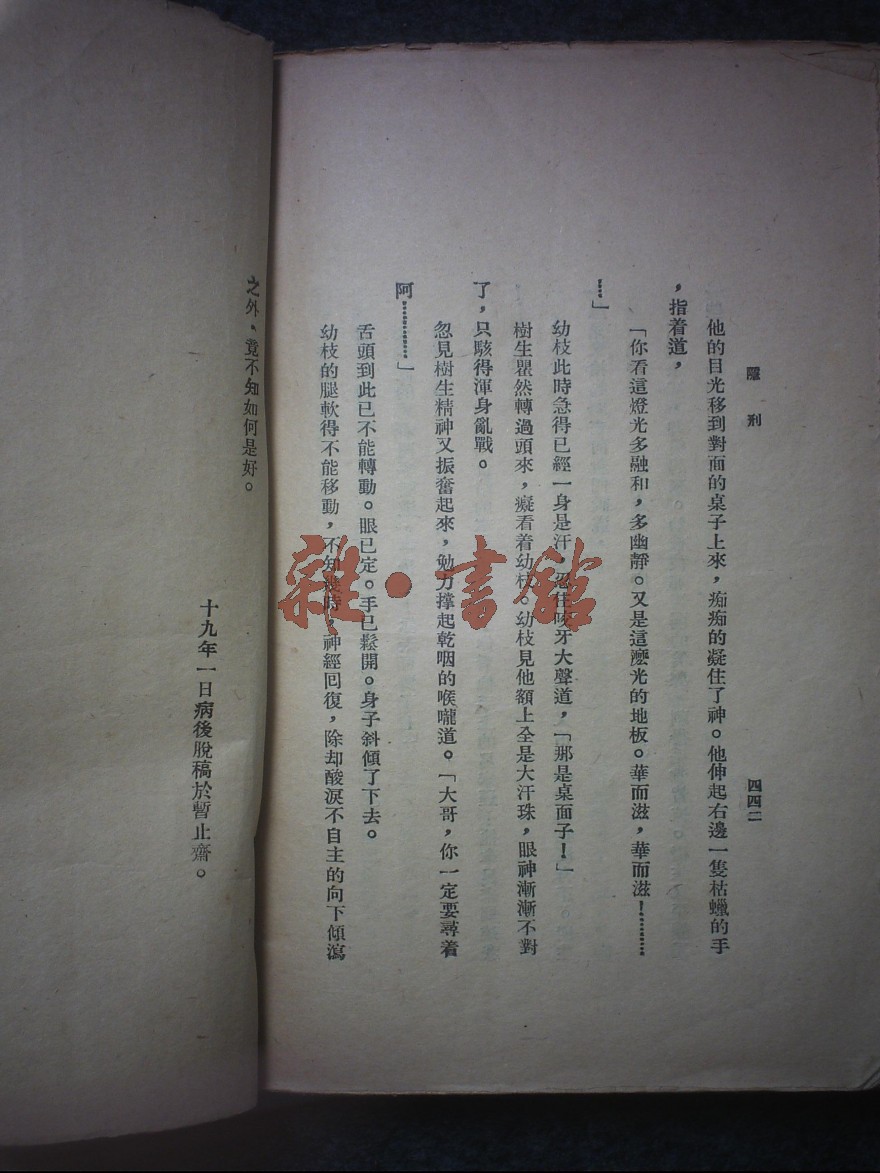 隱刑
四四二
他的目光移到對面的桌子上來，痴痴的凝住了神。他伸起右邊一隻枯蠟的手
，指着道，
「你看這燈光多融和，多幽靜。又是這麽光的地板。華而滋，華而滋！…………
……」
幼枝此時急得已經一身是汗，忍住咬牙大聲道，「那是桌面子！」
樹生瞿然轉過頭來，癡看着幼枝。幼枝見他額上全是大汗珠，眼神漸漸不對
了，只駭得渾身亂戰。
忽見樹生精神又振奮起來，勉力撐起乾咽的喉嚨道。「大哥，你一定要尋着
阿…………」
舌頭到此已不能轉動。眼已定。手已鬆開。身子斜傾了下去。
幼枝的腿軟得不能移動，不知幾時，神經回復，除却酸淚不自主的向下傾瀉
之外、竟不知如何是好。
十九年一日病後脫稿於暫止齋。
雜·書館